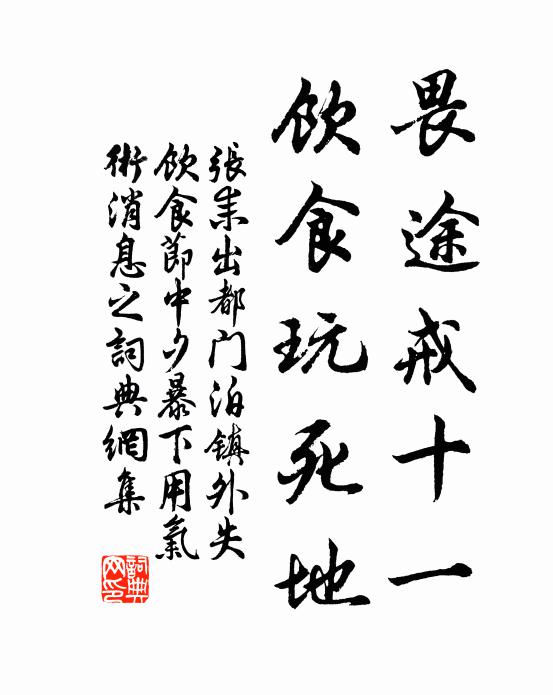 畏途戒十一
飲食玩死地
張耒出都門泊鎮外失
飲食節中夕暴下用氣
術消息之詞典網集
詞典
网印